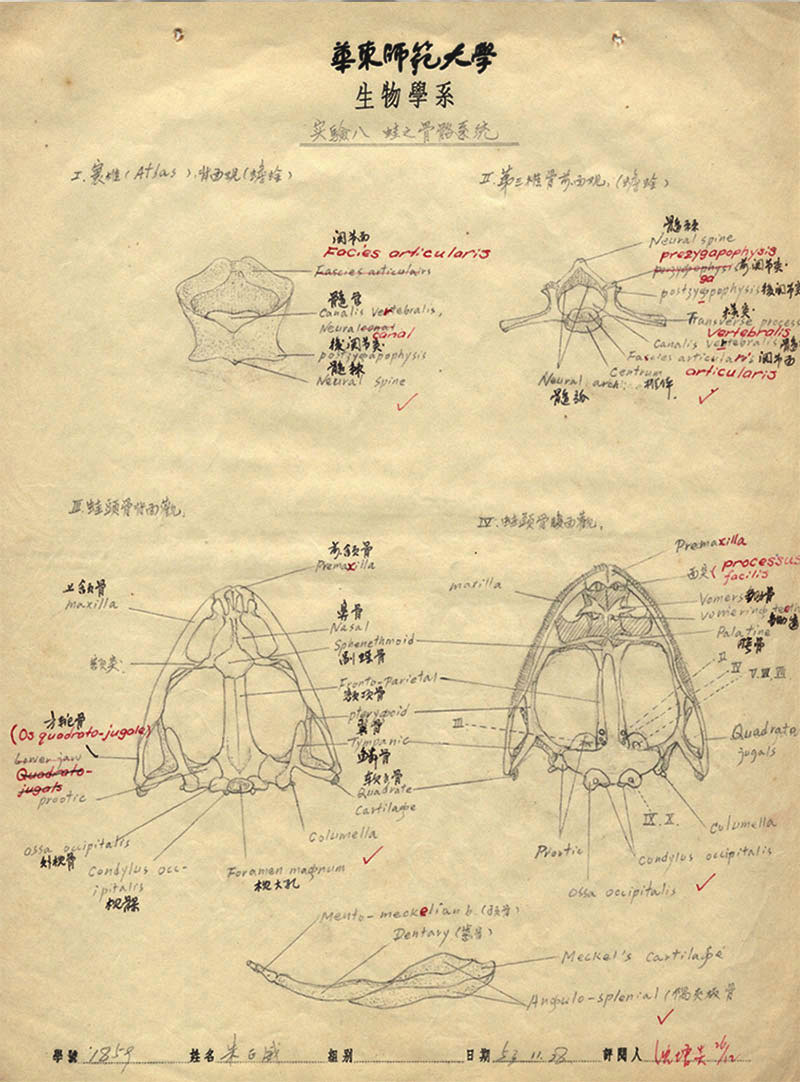 華東師範大學
生物學系
实驗八 蛙之骨骼系統
I. 寰椎(Atlas),背面观(蟾蜍)
II. 第三椎骨前面观,(蟾蜍)
関节面
Facies articularis
Fascies articulairs
髓管
Canalis vertebralis,
Neural canal
後関节突
postzygapophysis
髓棘
Neural spine
髓棘
Neural spine
prezygapophysis
前関节突
ga
postzygapophysis 後関节突
橫突
Transverse process
vertebralis
Canalis vertebralis 髓
Fascies articularis 関节面
Centrum articularis
Neural arch 椎体
髓弧
III. 蛙頭骨背面觀,
IV. 蛙頭骨腹面觀,
前頜骨
Premaxilla
上頜骨
maxilla
鼻骨
Nasal
Sphenethmoid
Fronto-parietal
額頂骨
pterygoid
翼骨
Tympanic
鱗骨
方軛骨
(Os quadrato-jugale)
Lower jaw
Quadrato-
jugals
prootic
Quadrate
Cartilage
Columella
Ossa occipitalis
外枕骨
Condylus occ-
ipitalis
枕髁
Foramen magnum
枕大孔
Premaxilla
面突 (processus
facilis
maxilla
Vomers
vomerine teeth
Palatine
腭骨
II
IV V.VII.VIII
III
Quadrato
jugals
IX. X.
Columella
Prootic
Condylus occipitalis
Ossa occipitalis
Mento-meckelian b. (頦骨)
Dentary (齒骨)
Meckel's Cartilage
Angulo-splenial (隅夾板骨
學號 1859 姓名 朱 組别 日期 53 11. 評閱人 26/12